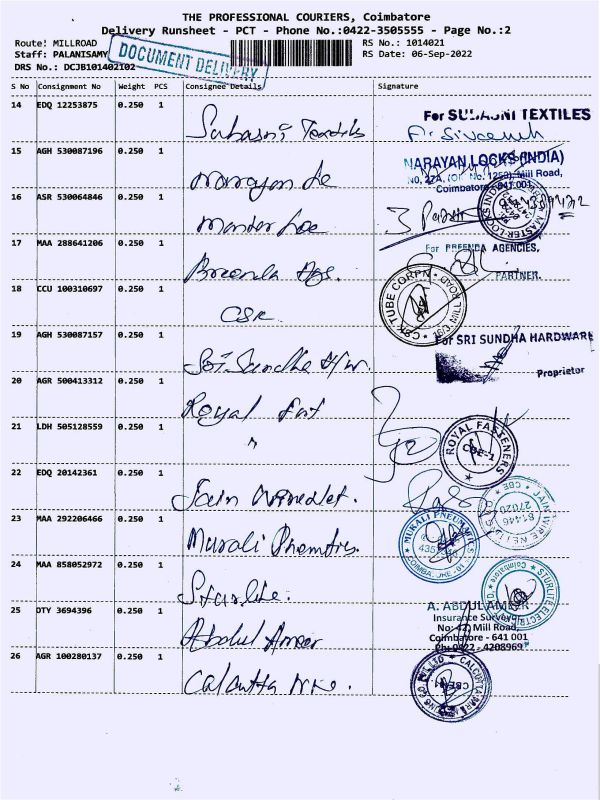 THE PROFESSIONAL COURIERS, Coimbatore
Delivery Runsheet - PCT - Phone No.:0422-3505555 - Page No.:2
Route: MILLROAD
RS No.: 1014021
Staff: PALANISAMY
RS Date: 06-Sep-2022
DRS No.: DCJB101402102
DOCUMENT DELIVERY
S No Consignment No Weight PCS Consignee Details Signature
14 EDQ 12253875 0.250 1
Subasni Textiles
For SUBASNI TEXTILES
15 AGH 530087196 0.250 1
Narayan Lo
NARAYAN LOCKS (INDIA)
NO, 27A, (Old No. 1253) Mill Road,
Coimbatore - 641 001
16 ASR 530064846 0.250 1
Master Loc
17 MAA 288641206 0.250 1
Breenda Ags.
For PREENDA AGENCIES,
PARTNER.
18 CCU 100310697 0.250 1
CSK
CSK TUBE CORPN
19 AGH 530087157 0.250 1
Sri Sundha H/w.
For SRI SUNDHA HARDWARE
Proprietor
20 AGR 500413312 0.250 1
Royal Fast
21 LDH 505128559 0.250 1
"
ROYAL FASTENERS
CBE-1
22 EDQ 20142361 0.250 1
Jain
JAIN WIRE NETTING
23 MAA 292206466 0.250 1
Murali
MURALI PNEUMATICS
24 MAA 858052972 0.250 1
Starlite.
STURLITE ELECTRIC
Coimbatore
25 DTY 3694396 0.250 1
Abdul Ameer
A. ABDUL AMEER
Insurance Surveyor
No: 42, Mill Road,
Coimbatore - 641 001
Ph: 0422 - 4208969
26 AGR 100280137 0.250 1
Calcutta